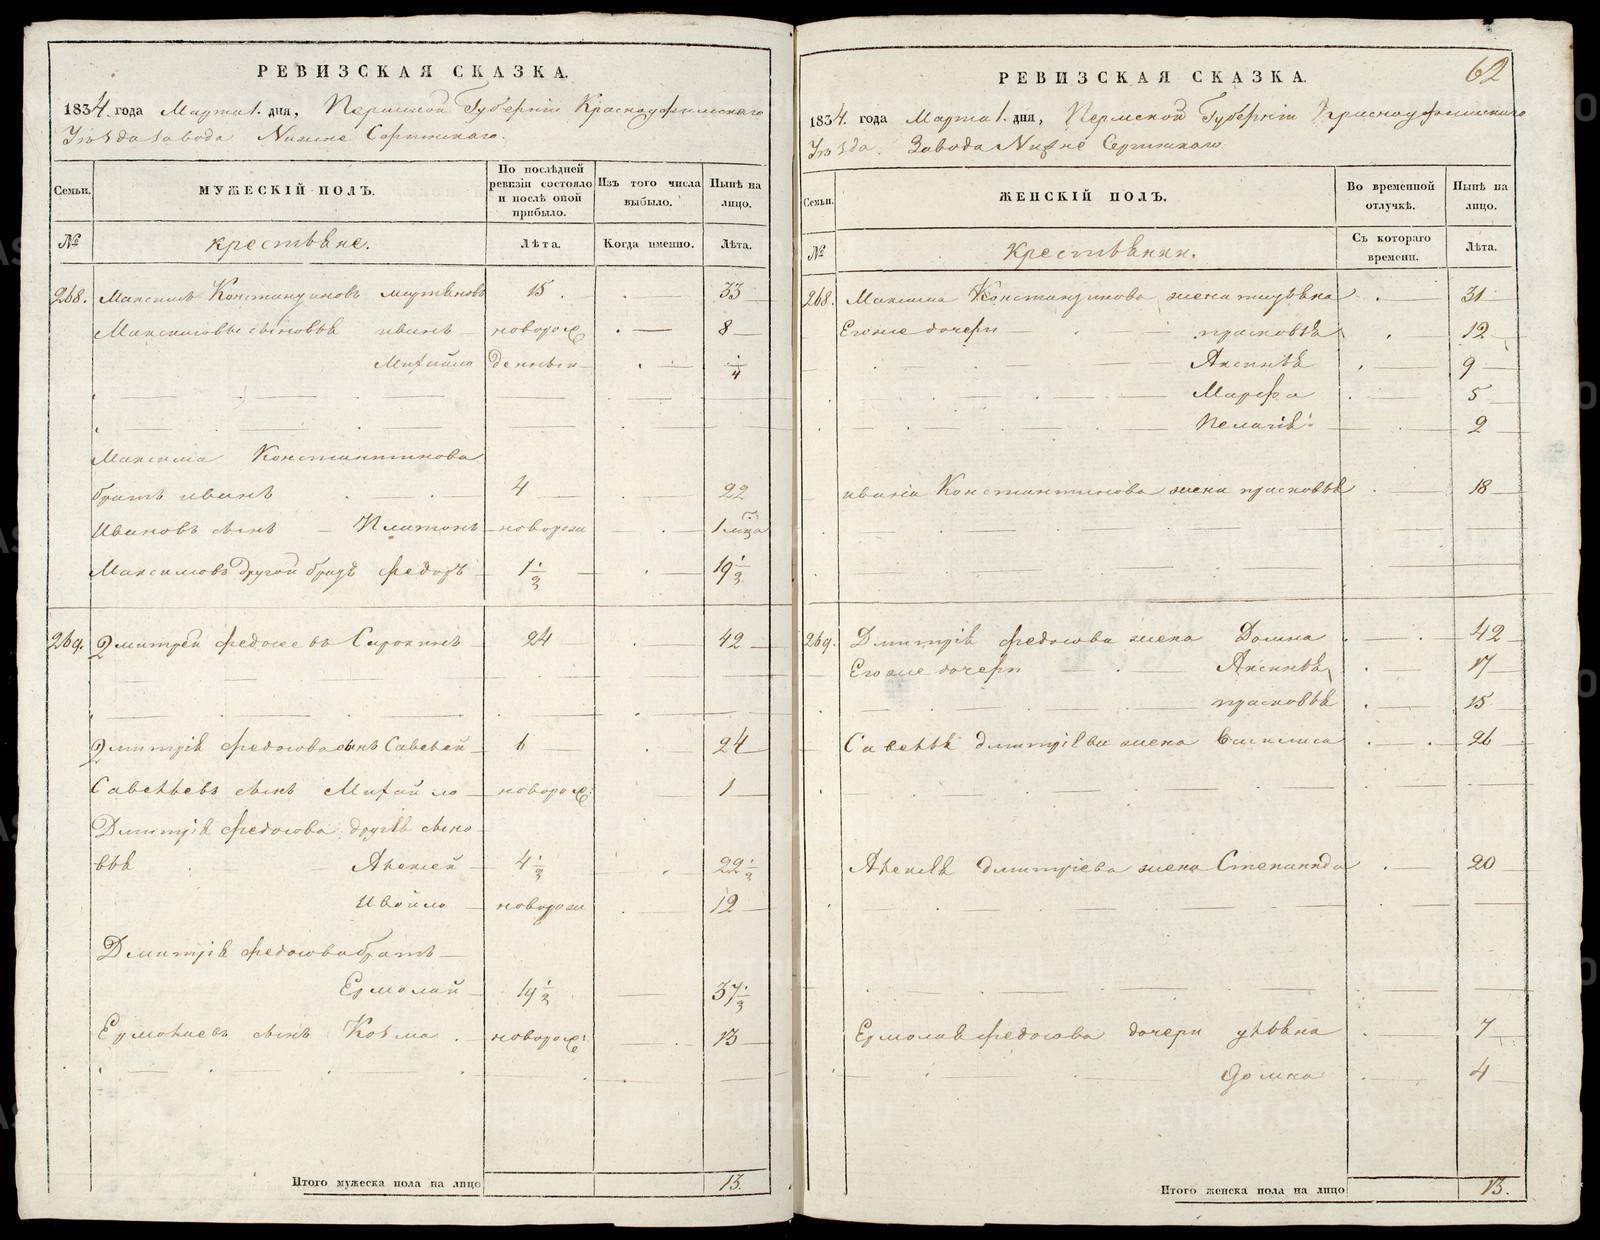 РЕВИЗСКАЯ СКАЗКА.
1834. года Марта 1. дня, Пермской Губерніи Красноуфимскаго
Уѣзда Завода Нижне Сергинскаго.
Семьи.
МУЖЕСКІЙ ПОЛЪ.
По послѣдней ревизіи состояло и послѣ оной прибыло.
Изъ того числа выбыло.
Нынѣ на лицо.
№
крестьѣне.
Лѣта.
Когда именно.
Лѣта.
268. Максимъ Констандиновъ 15. 33
Максимовы сыновьѣ иванъ новорож 8
Михайло денныи 1/4
Максима Константинова
братъ иванъ 4 22
Ивановъ сынъ Платонъ новорож 1 мца
Максимовъ другой братъ федоръ 1 1/2 19 1/2
269. Дмитрей федосеевъ Сорокинъ 24 42
Дмитріѣ федосова сынъ Савелей 6 24
Савельевъ сынъ Михайло новорож: 1
Дмитріѣ федосова другіѣ сыно-
вьѣ Алексей 4 1/2 22 1/2
Ивойло новорож 12
Дмитріѣ федосова братъ
Ермолай 19 1/2 37 1/2
Ермолаевъ сынъ Козма новорож: 13
Итого мужеска пола на лицо 13.
62
РЕВИЗСКАЯ СКАЗКА.
1834. года Марта 1. дня, Пермской Губерніи Красноуфимскаго
Уѣзда. Завода Нижне Сергинскаго
Семьи.
ЖЕНСКІЙ ПОЛЪ.
Во временной отлучкѣ.
Нынѣ на лицо.
№
Крестьѣнки.
Съ котораго времени.
Лѣта.
268. Максима Констандинова жена 31
Его же дочери прасковьѣ 12
Аксиньѣ 9
Марфа 5
Пелагіѣ: 2
ивана Константинова жена прасковьѣ 18
269. Дмитріѣ федосова жена Домна 42
Его же дочери Аксиньѣ 17
прасковьѣ 15
Савельѣ дмитріѣва жена Василиса 26
Алексѣѣ дмитріева жена Степанида 20
Ермолаѣ федосова дочери ульѣна 7
Домна 4
Итого женска пола на лицо 13.
METRIKI.GASO-URAL.RU